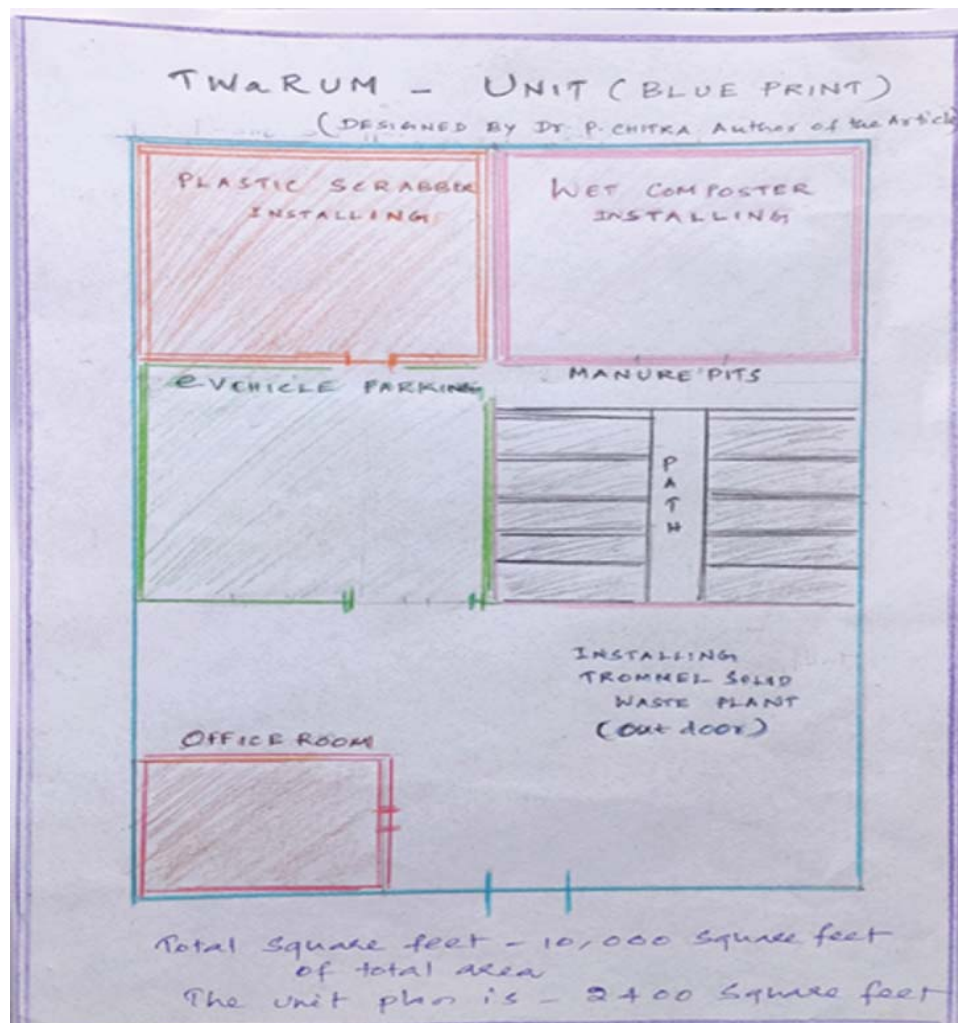 TWaRUM - UNIT (BLUE PRINT)
(DESIGNED BY Dr P. CHITRA Author of the Article
PLASTIC SCRABBER
INSTALLING
WET COMPOSTER
INSTALLING
eVEHICLE PARKING
MANURE PITS
PATH
INSTALLING
TROMMEL SOLID
WASTE PLANT
(Out door)
OFFICE ROOM
Total Square feet - 10,000 Square feet
of total area
The unit plan is - 2400 Square feet